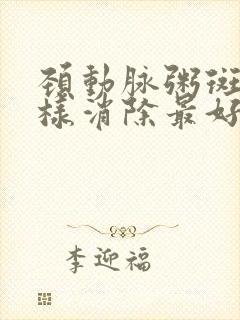 頸動脉粥斑
樣消除最好
李迎福